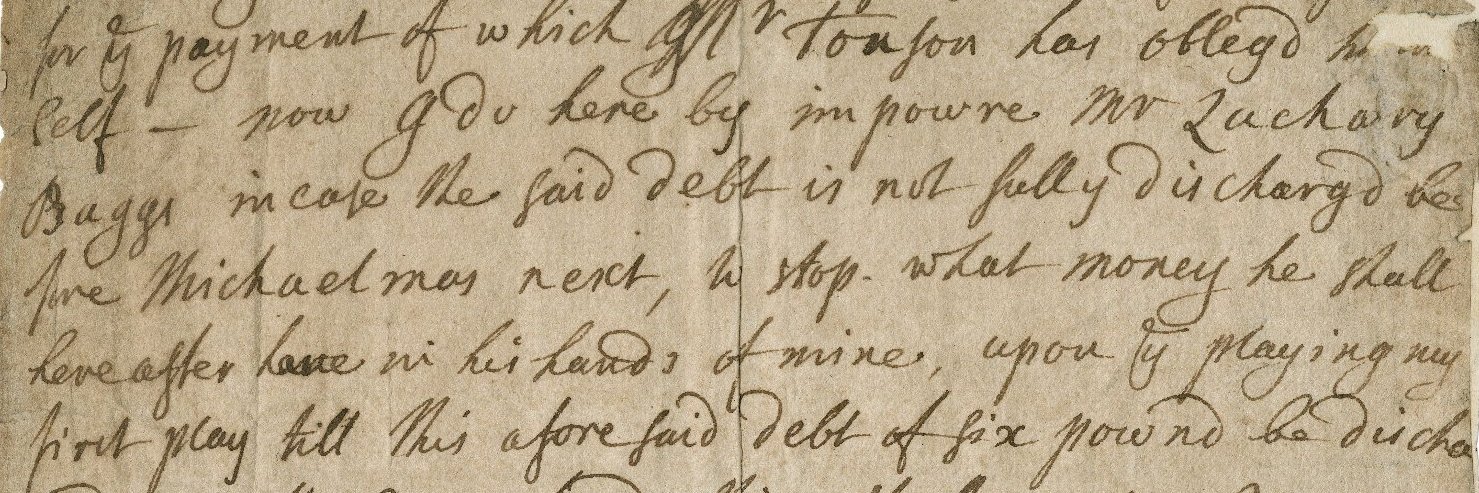 for ye payment of which Mr Tonson has oblegd him
self – now I do here by impowre Mr Zachary
Baggs in case the said debt is not fully dischargd be
fore Michaelmas next, to stop what money he shall
here after have in his hands of mine, upon ye playing my
first play till this afore said debt of six pownd be discha